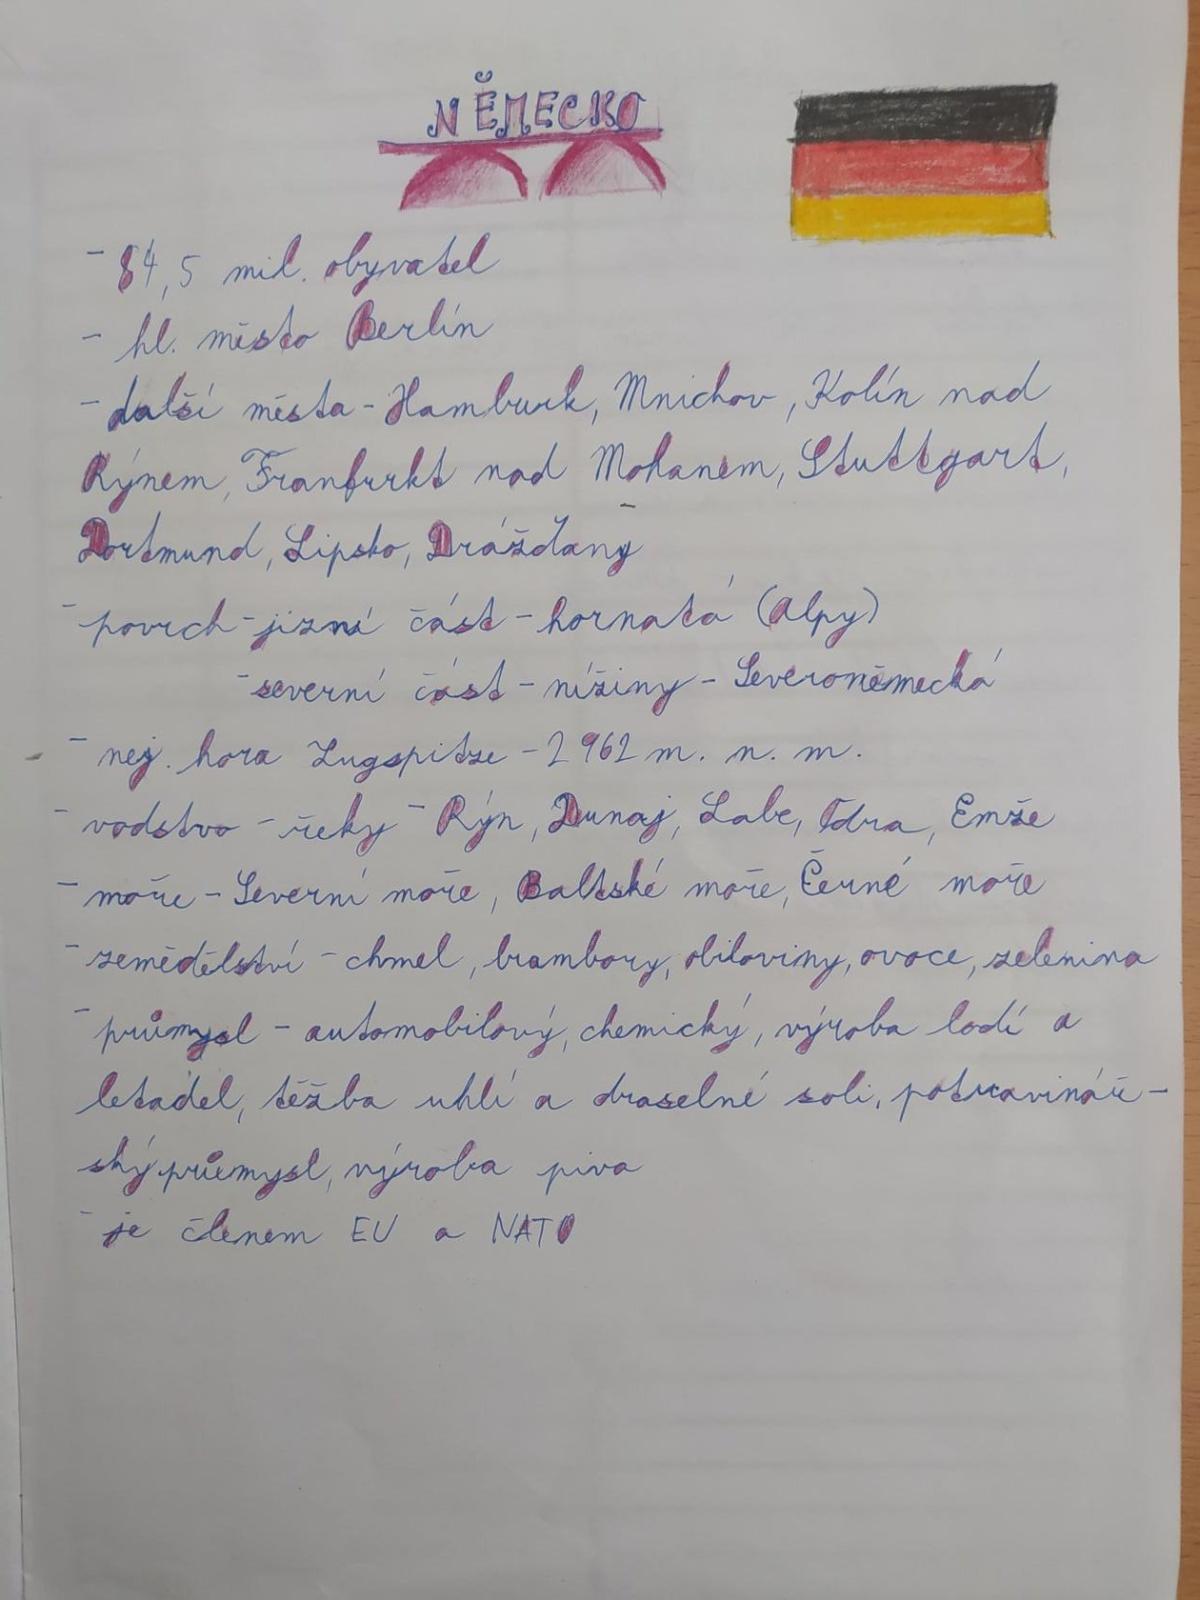 NĚMECKO
- 84,5 mil. obyvatel
- hl. město Berlín
- další města - Hamburk, Mnichov, Kolín nad
Rýnem, Franfurkt nad Mohanem, Stuttgart,
Dortmund, Lipsko, Drážďany
- povrch - jizní část - hornatá (Alpy)
- severní část - nížiny - Severoněmecká
- nej. hora Zugspitze - 2 962 m. n. m.
- vodstvo - řeky - Rýn, Dunaj, Labe, Odra, Emže
- moře - Severní moře, Baltské moře, Černé moře
- zemědělství - chmel, brambory, obiloviny, ovoce, zelenina
- průmysl - automobilový, chemický, výroba lodí a
letadel, těžba uhlí a draselné soli, potravinář-
ský průmysl, výroba piva
- je členem EU a NATO